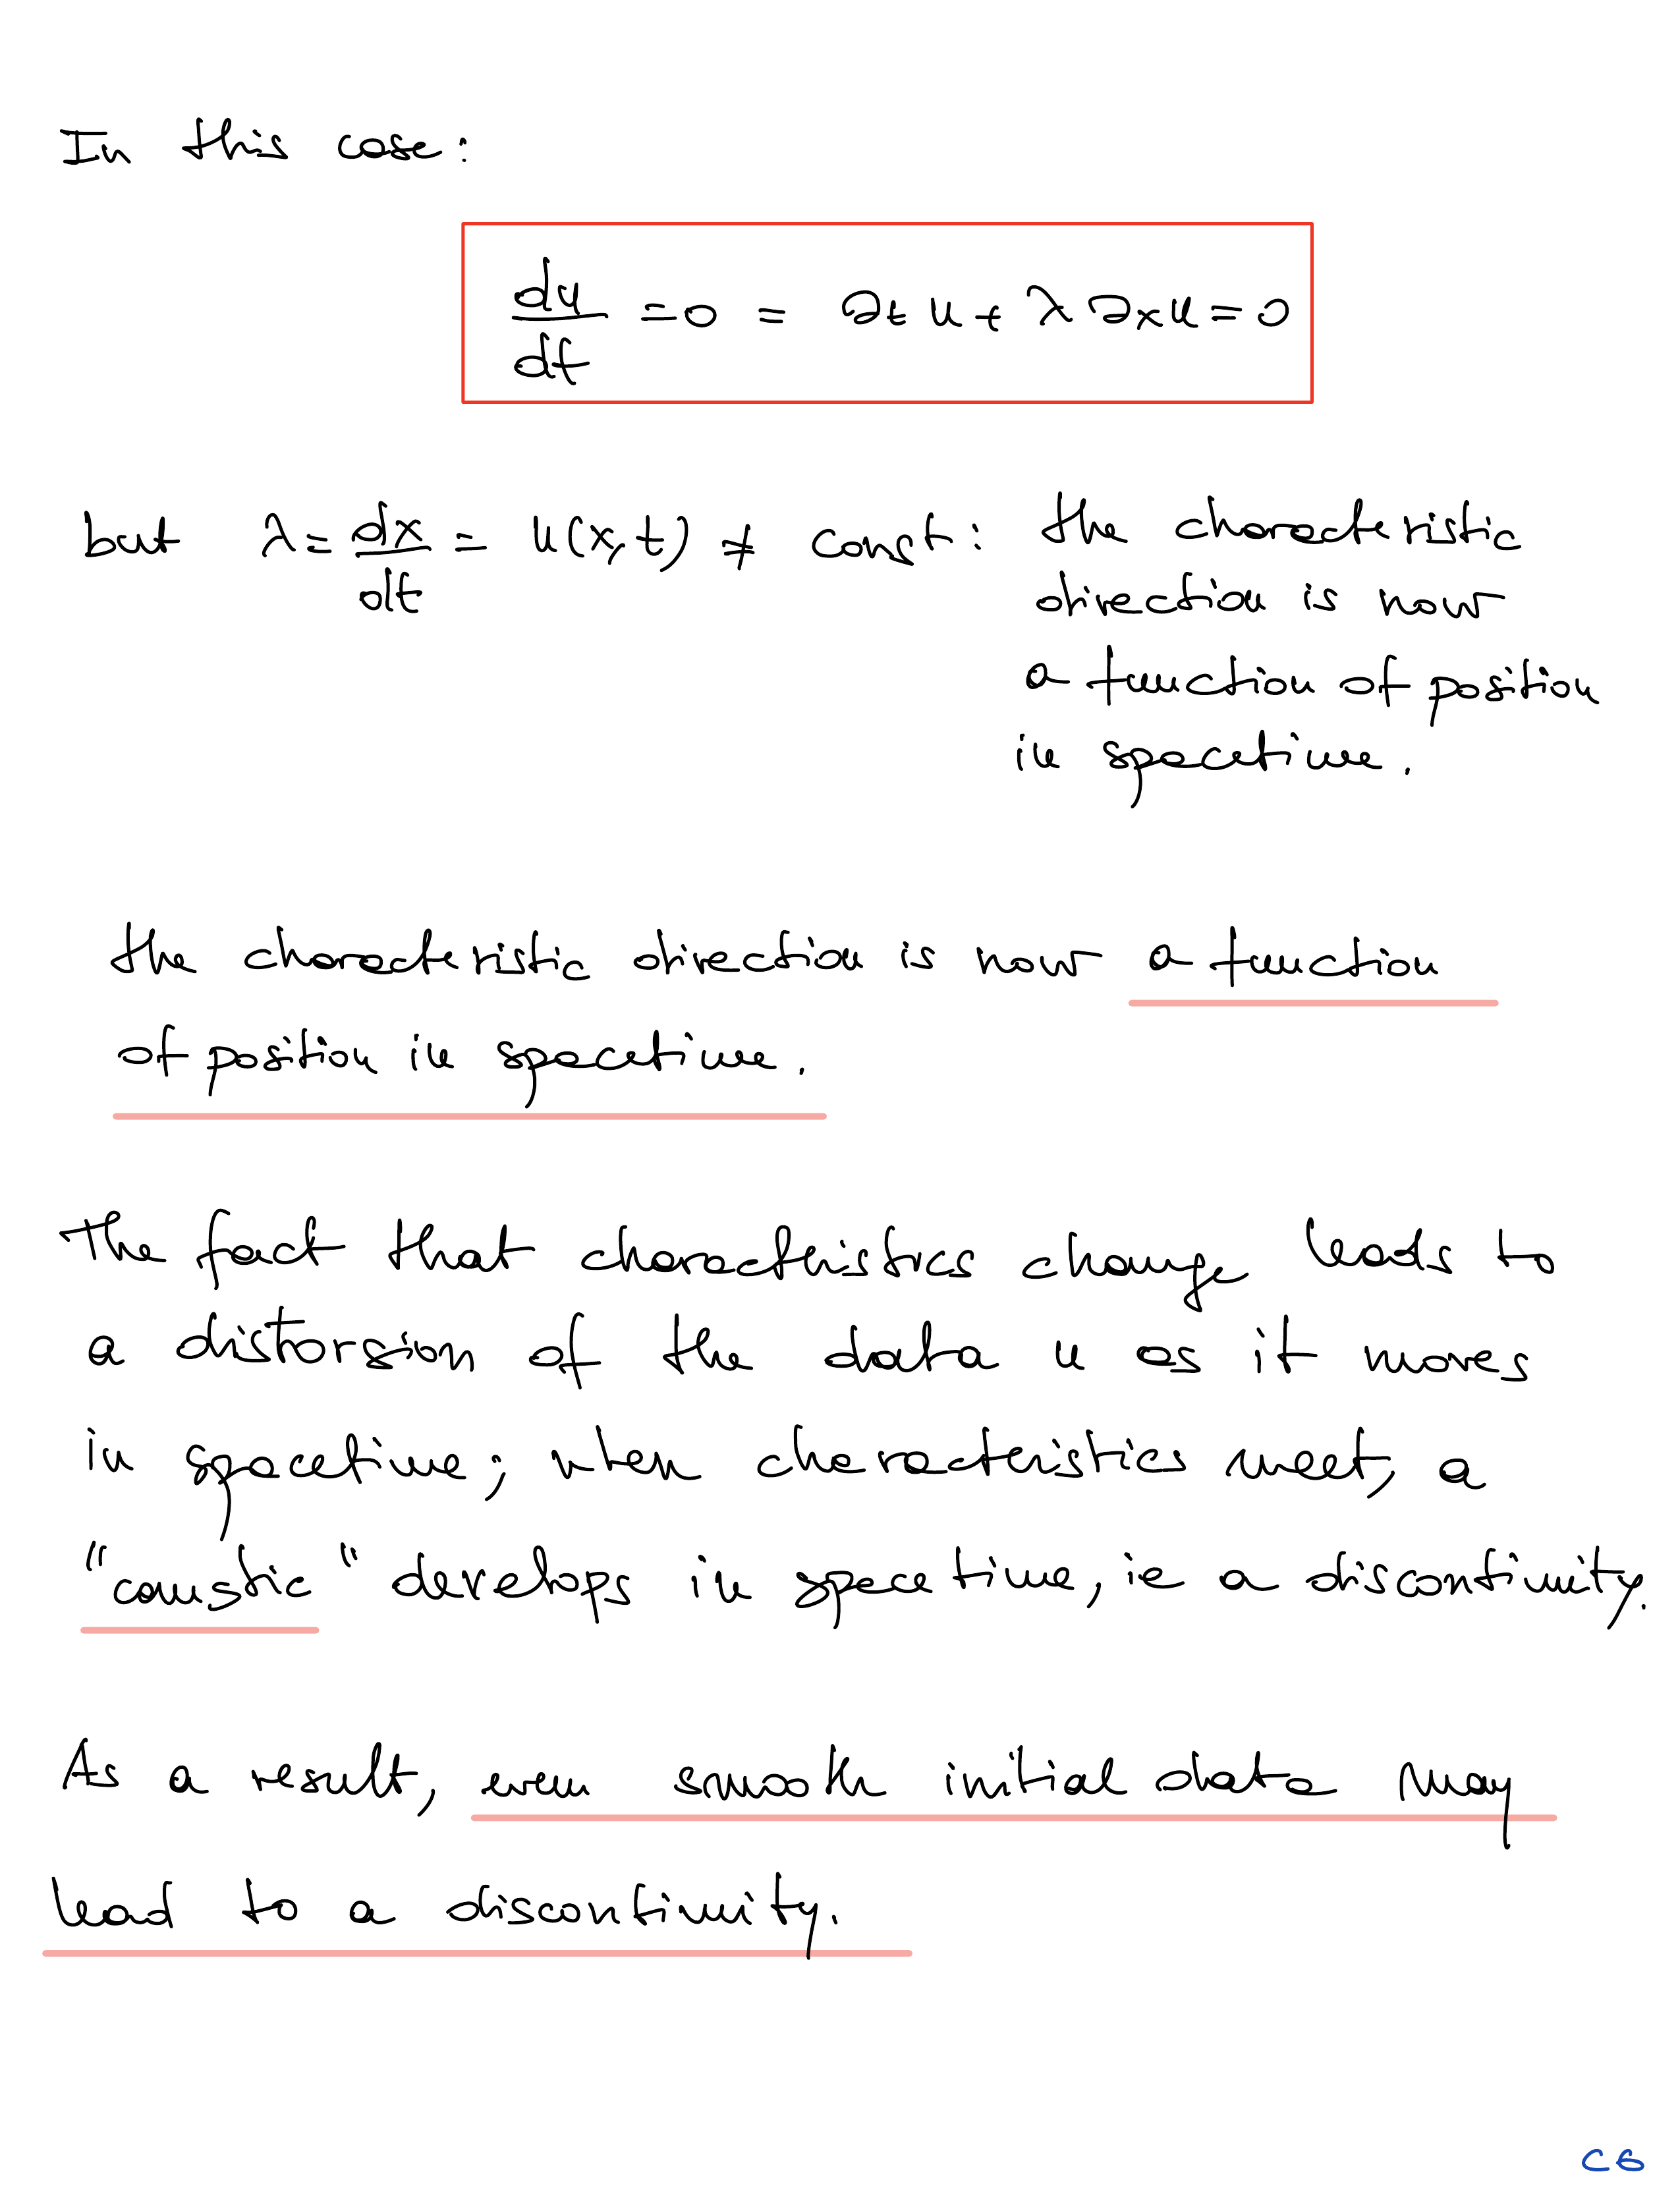 In this case:
du/dt = 0 = ∂t u + λ ∂x u = 0
but λ = dx/dt = u(x,t) ≠ const: the characteristic
direction is now
a function of position
in spacetime.
the characteristic direction is now a function
of position in spacetime.
The fact that characteristics change leads to
a distorsion of the data u as it moves
in spacetime; when characteristics meet, a
"caustic" develops in spacetime, ie a discontinuity.
As a result, even smooth initial data may
lead to a discontinuity.
C6